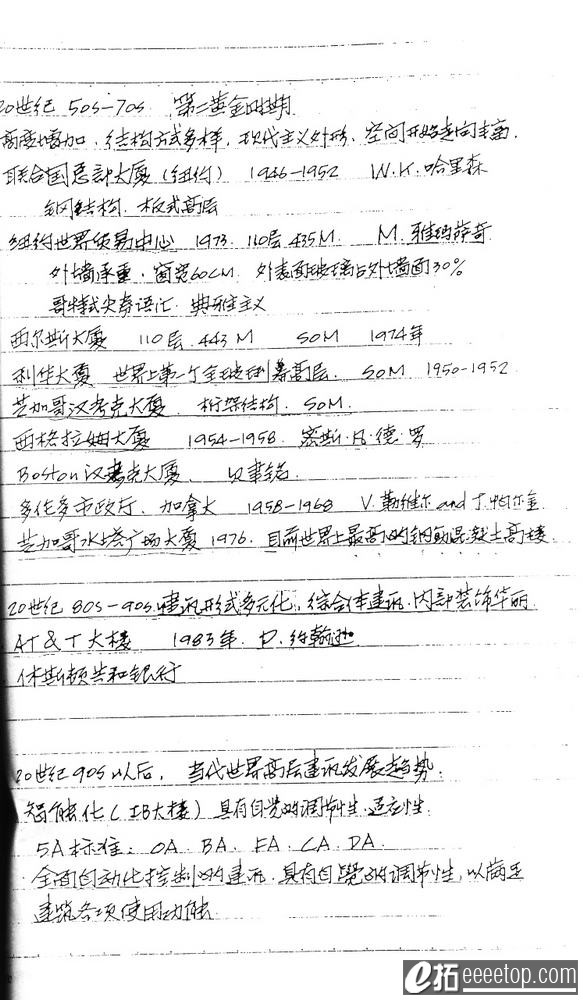 20世纪 50s-70s. 第二黄金时期
高度增加、结构方式多样，现代主义外形、空间开始走向丰富.
联合国总部大厦(纽约) 1946-1952 W.K.哈里森
钢结构、板式高层
纽约世界贸易中心 1973. 110层 435M M.雅玛萨奇
外墙承重、窗宽60CM. 外表面玻璃占外墙面30%
哥特式尖券语汇. 典雅主义
西尔斯大厦 110层.443M SOM 1974年
利华大厦 世界上第一个全玻璃幕高层. SOM 1950-1952.
芝加哥汉考克大厦. 桁架结构. SOM.
西格拉姆大厦 1954-1958. 密斯.凡.德.罗
Boston汉考克大厦. 贝聿铭
多伦多市政厅、加拿大 1958-1968 V.勒维尔 and J.帕尔金
芝加哥水塔广场大厦1976. 目前世界上最高的钢筋混凝土高楼.
20世纪80s-90s.建筑形式多元化,综合体建筑.内部装饰华丽
AT&T大楼 1983年. P.约翰逊
休斯顿共和银行
20世纪90s以后， 当代世界高层建筑发展趋势.
智能化(IB大楼) 具有自觉的调节性.适应性.
5A标准: OA. BA. FA. CA. DA.
全面自动化控制的建筑.具有自觉的调节性,以满足
建筑各项使用功能.
e拓 eeeetop.com